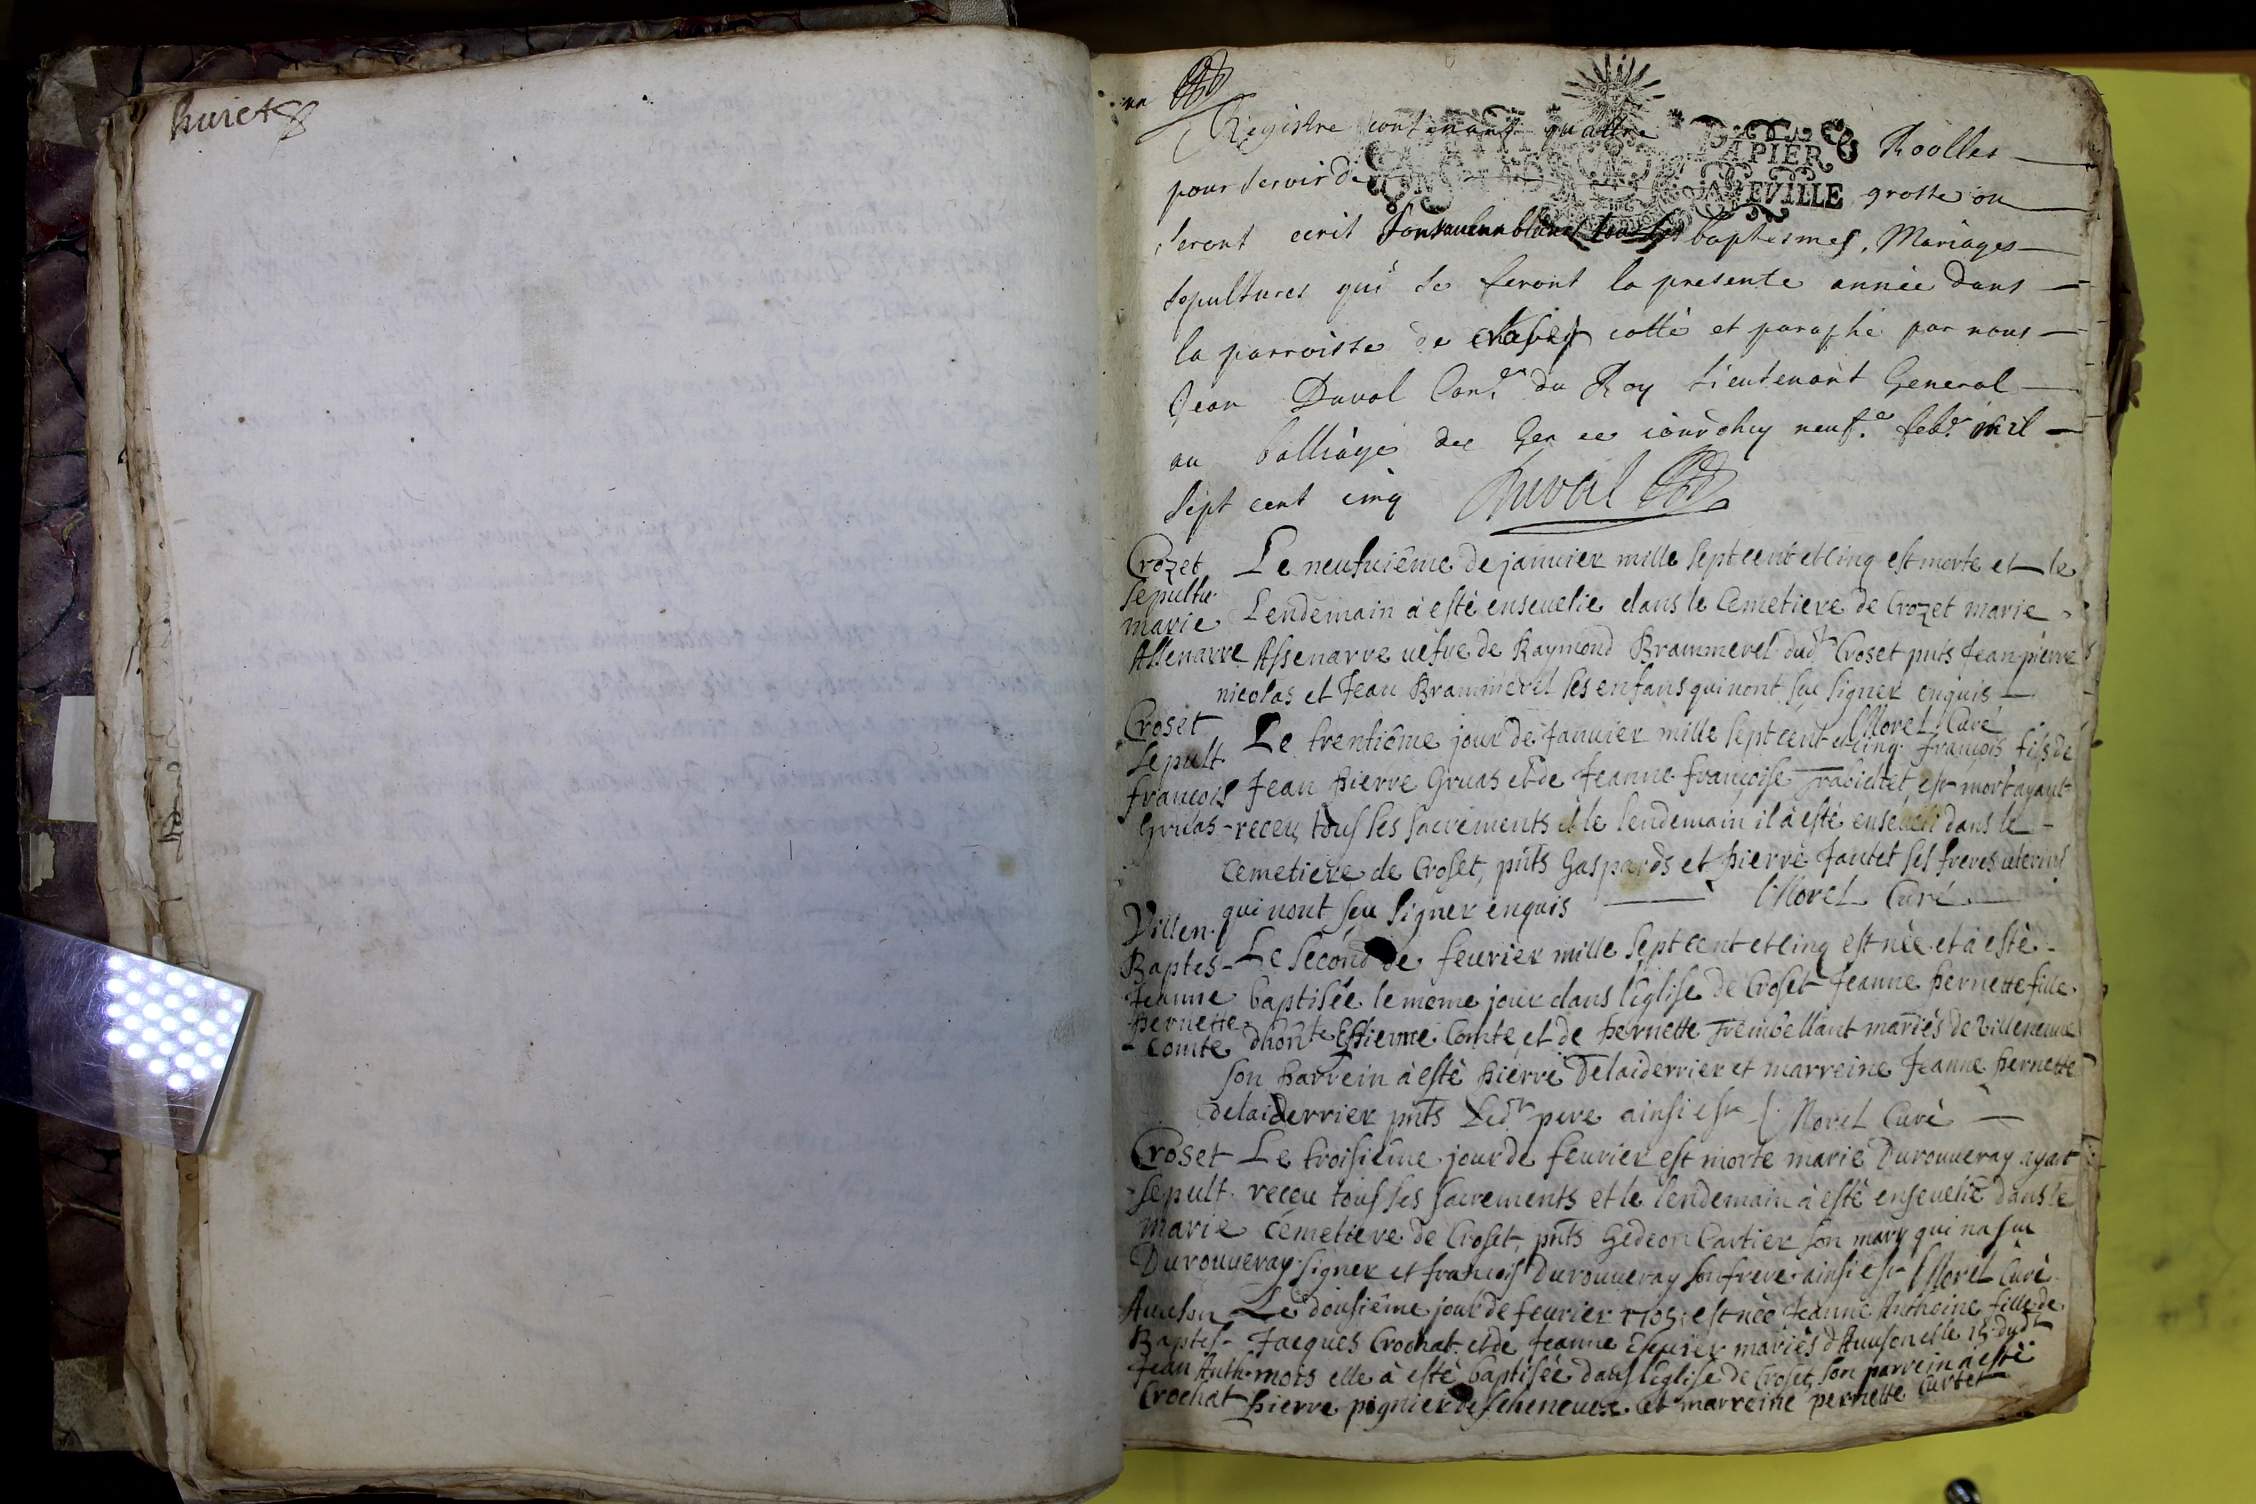 huict
un
Registre contenant quattre Roolles
PAPIER
pour servir de grosse ou
ABEVILLE
seront ecrit tous les baptesmes, Mariages
sepultures qui se feront la presente année dans
la parroisse de cotté et paraphé par nous
Jean Duval Con.er du Roy Lieutenant General
au balliage de Gex ce jourdhuy neuf.e feb.er mil
sept cent cinq Duval
Crozet Le neufuiême de januier mille sept cent et cinq est morte et le
sepultu. Lendemain à esté enseuelie dans le Cemetiere de Crozet marie
marie
Assenarre Assenarre uefue de Raymond Brammerel dudt Croset pnts Jean pierre
nicolas et Jean Brammerel ses enfans qui nont sçu signer enquis
Morel Curé
Croset Le trentiême jour de Januier mille sept cent et cinq françois fils de
sepult. Jean Pierre Gruas et de Jeanne françoise Trabichet est mort ayant
françois
Gruas receu tous ses sacrements et le lendemain il à esté enseueli dans le
cemetiere de Croset, pnts Gaspards et Pierre Jantet ses freres uterins
qui nont sçu signer enquis Morel Curé
Villen.
Baptes Le second de feurier mille sept cent et cinq est née et à esté
Jeanne baptisée le meme jour dans l'église de Croset Jeanne Pernette fille
Pernette
Comte dhonte Estienne Comte et de Pernette Trembellant mariés de Villeneuue
son Parrein à esté Pierre Delaiderrier et marreine Jeanne Pernette
delaiderrier pnts Ledt pere ainsi est Morel Curé
Croset Le troisiême jour de feurier est morte marie Durouueray ayant
sepult. receu tous ses sacrements et le lendemain à esté enseuelie dans le
marie cémetiere de Croset, pnts Gedeon Cartier son mary qui na sçu
Durouueray signer et françois Durouueray son frere ainsi est Morel Curé
Auuson Le dousiême jour de feurier 1705 est née Jeanne Anthoine fille de
Baptes Jacques Crochat et de Jeanne mariés d'Auuson et le 15 dudt
Jean Anth. mois elle à esté baptisée dans l'église de Croset, son parrein à esté
Crochat Pierre pignier de et marreine pernette Curtet